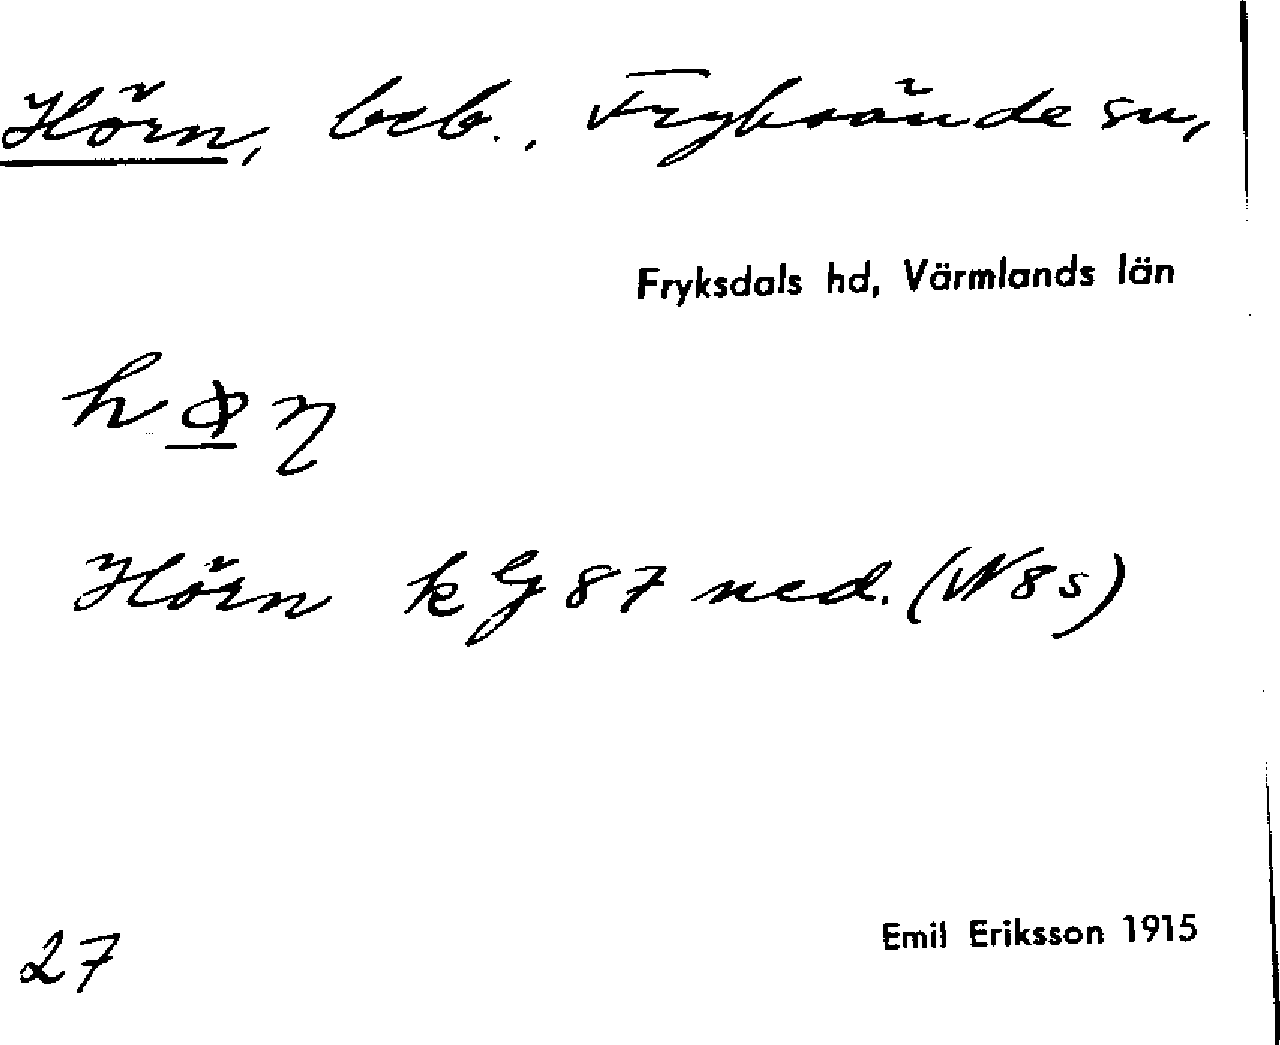 Hörn, beb., Fryksände sn,
Fryksdals hd, Värmlands län
Hörn k G 87 ned. (N 8 s)
27
Emil Eriksson 1915